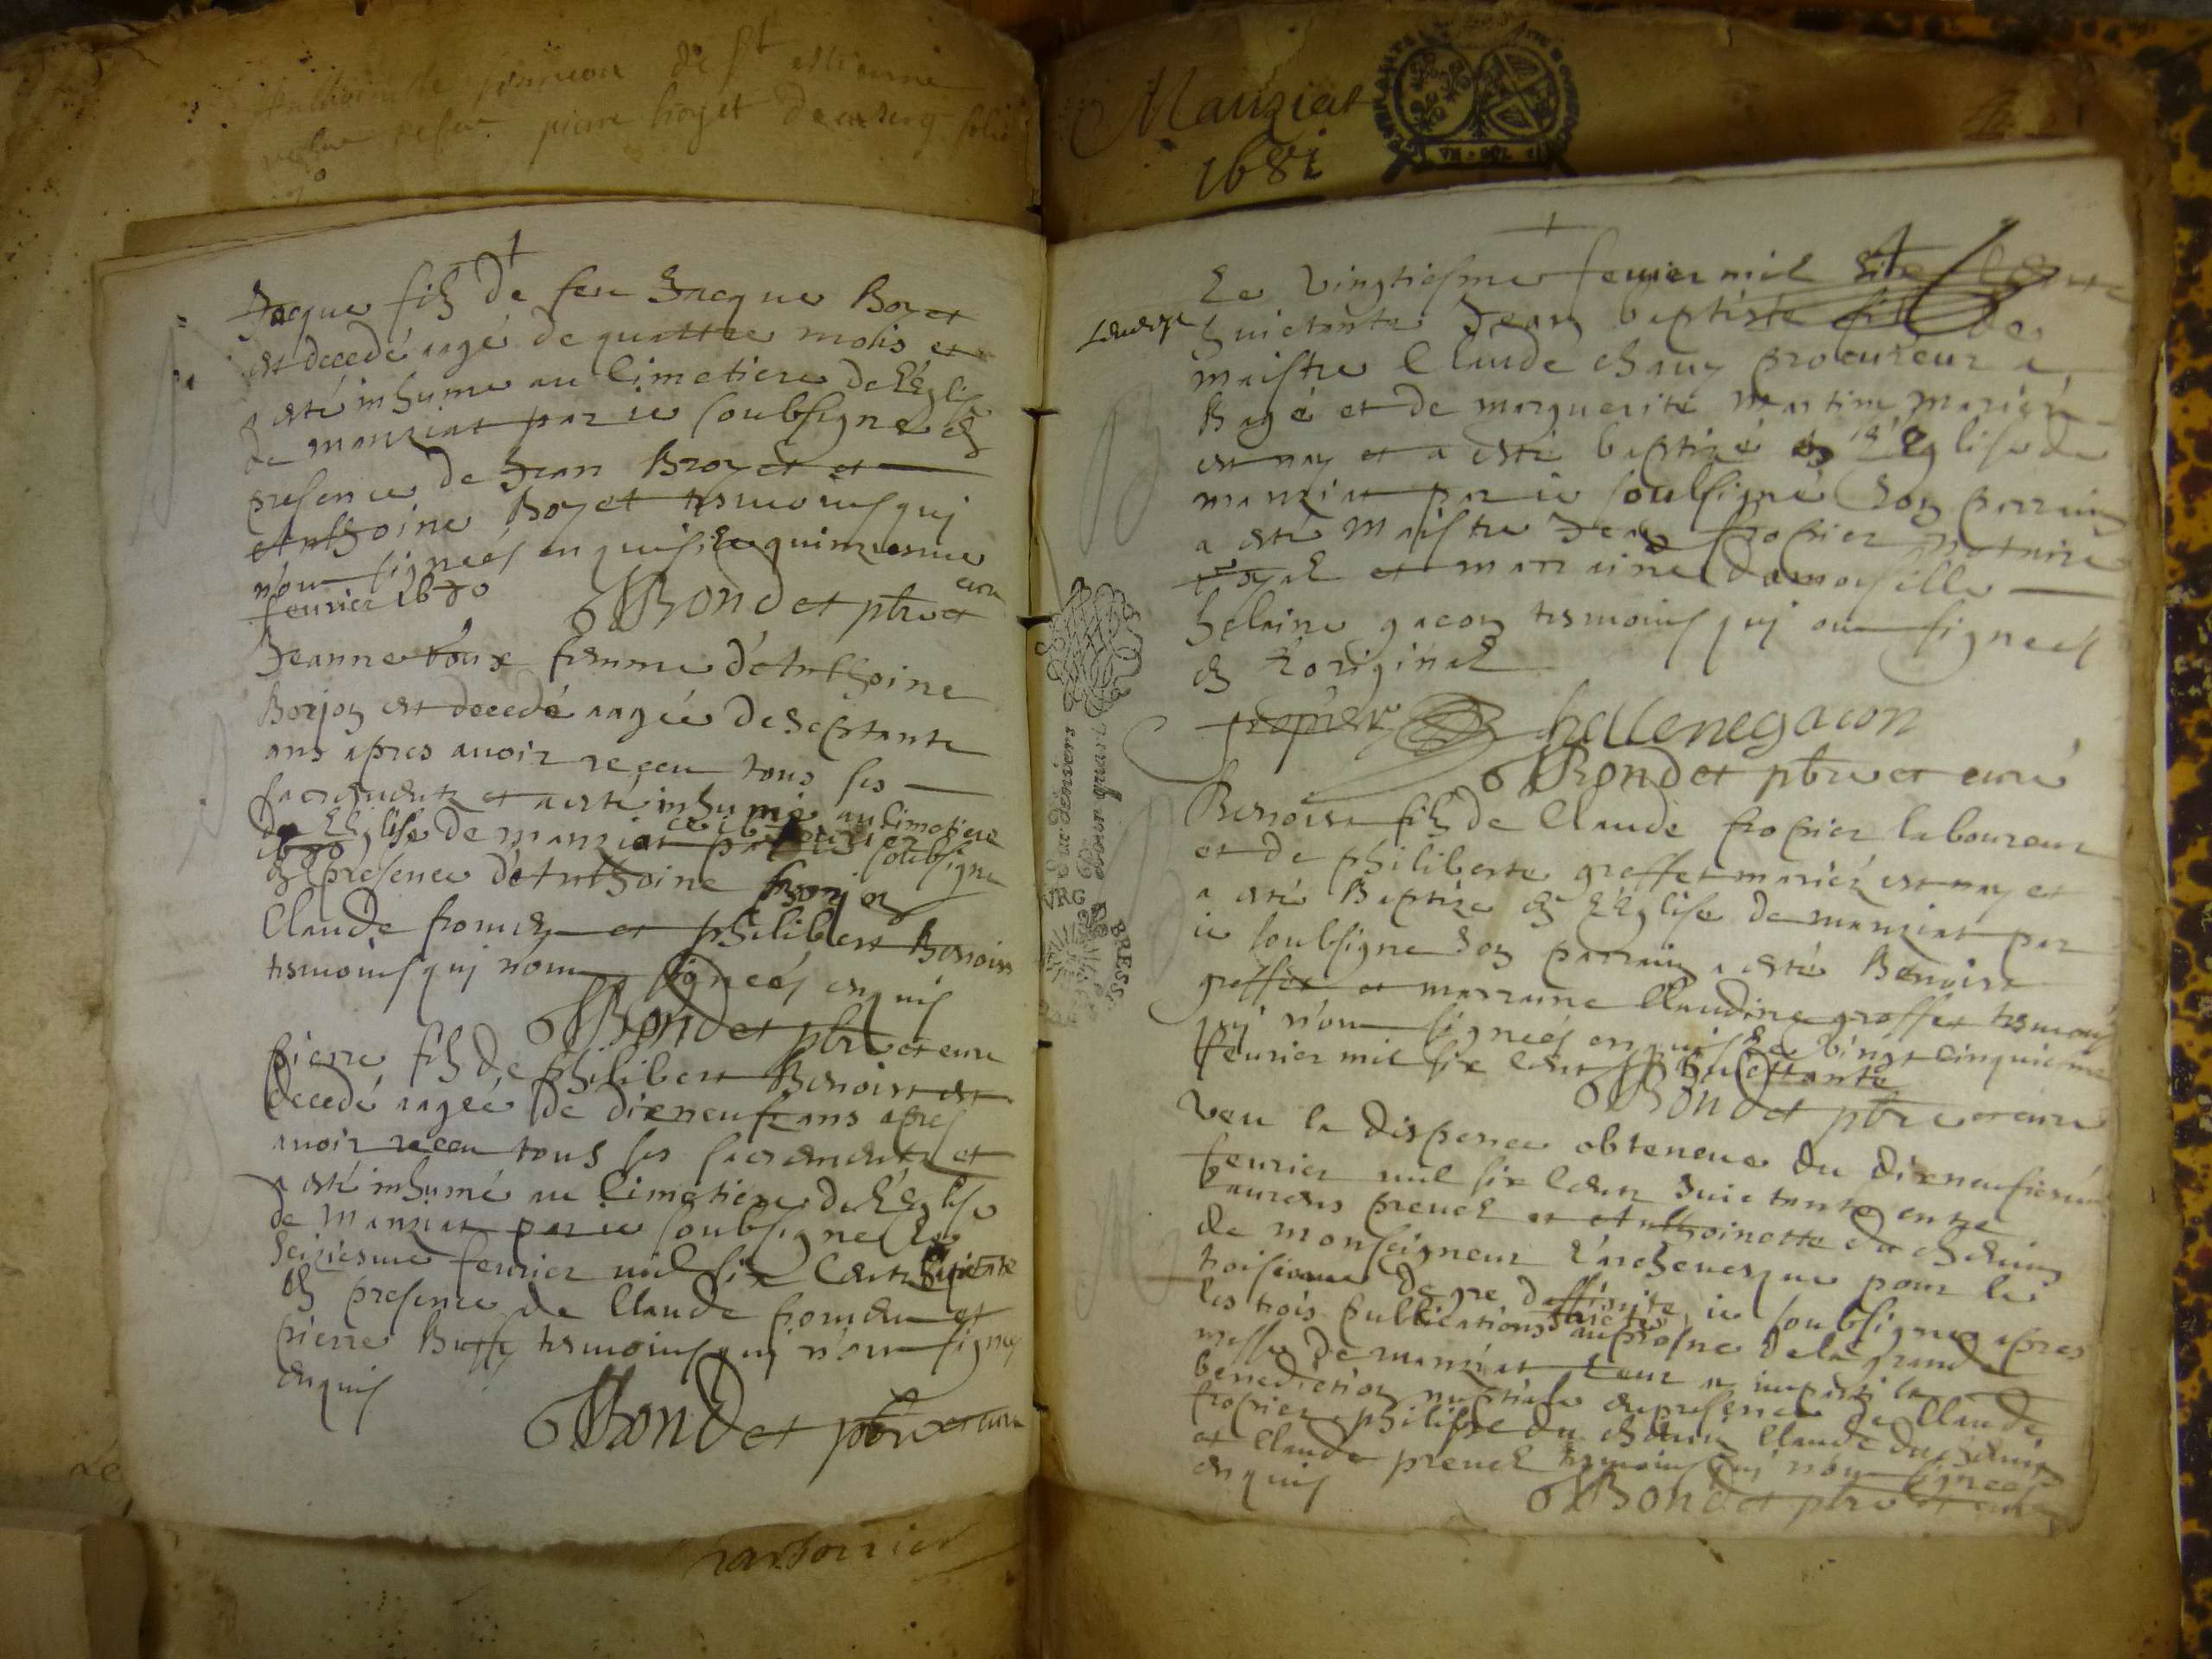 de st estienne
pierre boyet
Jacque filz de feu Jacque Boyet
est decedé aagé de quattre mois et
a esté inhume au Cimetiere de l'Eglise
de manziat par ie soubsigne en
presence de Jean Broyet et
Anthoine Boyet tesmoins qui
n'ont signeés enquis le quinziesme
feurier 1680
Bondet pbre et curé
Jeanne Roux femme d'Anthoine
Borjon est decedé aagée de septante
ans apres auoir reçeu tous les
sacrements et a esté inhumé au Cimetiere
de l'Eglise de manziat par ie soubsigne
en presence d'Anthoine Borjon
Claude et philibert Benoist
tesmoins qui n'ont signeés enquis
Bondet pbre et curé
pierre filz de philibert Benoist est
decedé aageé de dixneuf ans apres
auoir receu tous les sacrements et
a esté inhumé au Cimetiere de l'Eglise
de manziat par ie soubsigne le
seiziesme feurier mil six Cents huictante
en presence de Claude et
pierre Buffy tesmoins qui n'ont signeés
enquis
Bondet pbre et curé
Manziat
1681
Le vingtiesme feurier mil six Cents
huictante Jean baptiste filz de
maistre Claude chauy procureur a
Bagé et de marguerite martine mariés
est nay et a esté baptizé en l'Eglise de
manziat par ie soubsigné son parrain
a esté Maistre Jean fropier notaire
royal et marraine damoiselle
helaine gacon tesmoins qui ont signeés
en l'original
fropier hellenegacon
Bondet pbre et curé
Benoist filz de Claude fropier laboureur
et de philiberte greffet mariéz est nay et
a esté Baptize en l'Eglise de manziat par
ie soubsigne son parrain a esté Benoist
greffet et marraine Claudine greffet tesmoins
qui n'ont signeés enquis le vingt cinquiesme
feurier mil six Cents huictante
Bondet pbre et curé
Veu la dispence obtenue du dixneufiesme
feurier mil six Cents huictante entre
Laurens preuel et Anthoinette du chemin
de monseigneur l'archeuesque pour le
troisieme degre d'affinite ie soubsigne apres
les trois publications faictes au prosne de la grande
messe de manziat leur a imparti la
benediction nuptiale en presence de Claude
fropier philippe du chemin Claude du chemin
et Claude preuel tesmoins qui n'ont signeés
enquis
Bondet pbre et curé
deniers
VRG
BRESS
Le